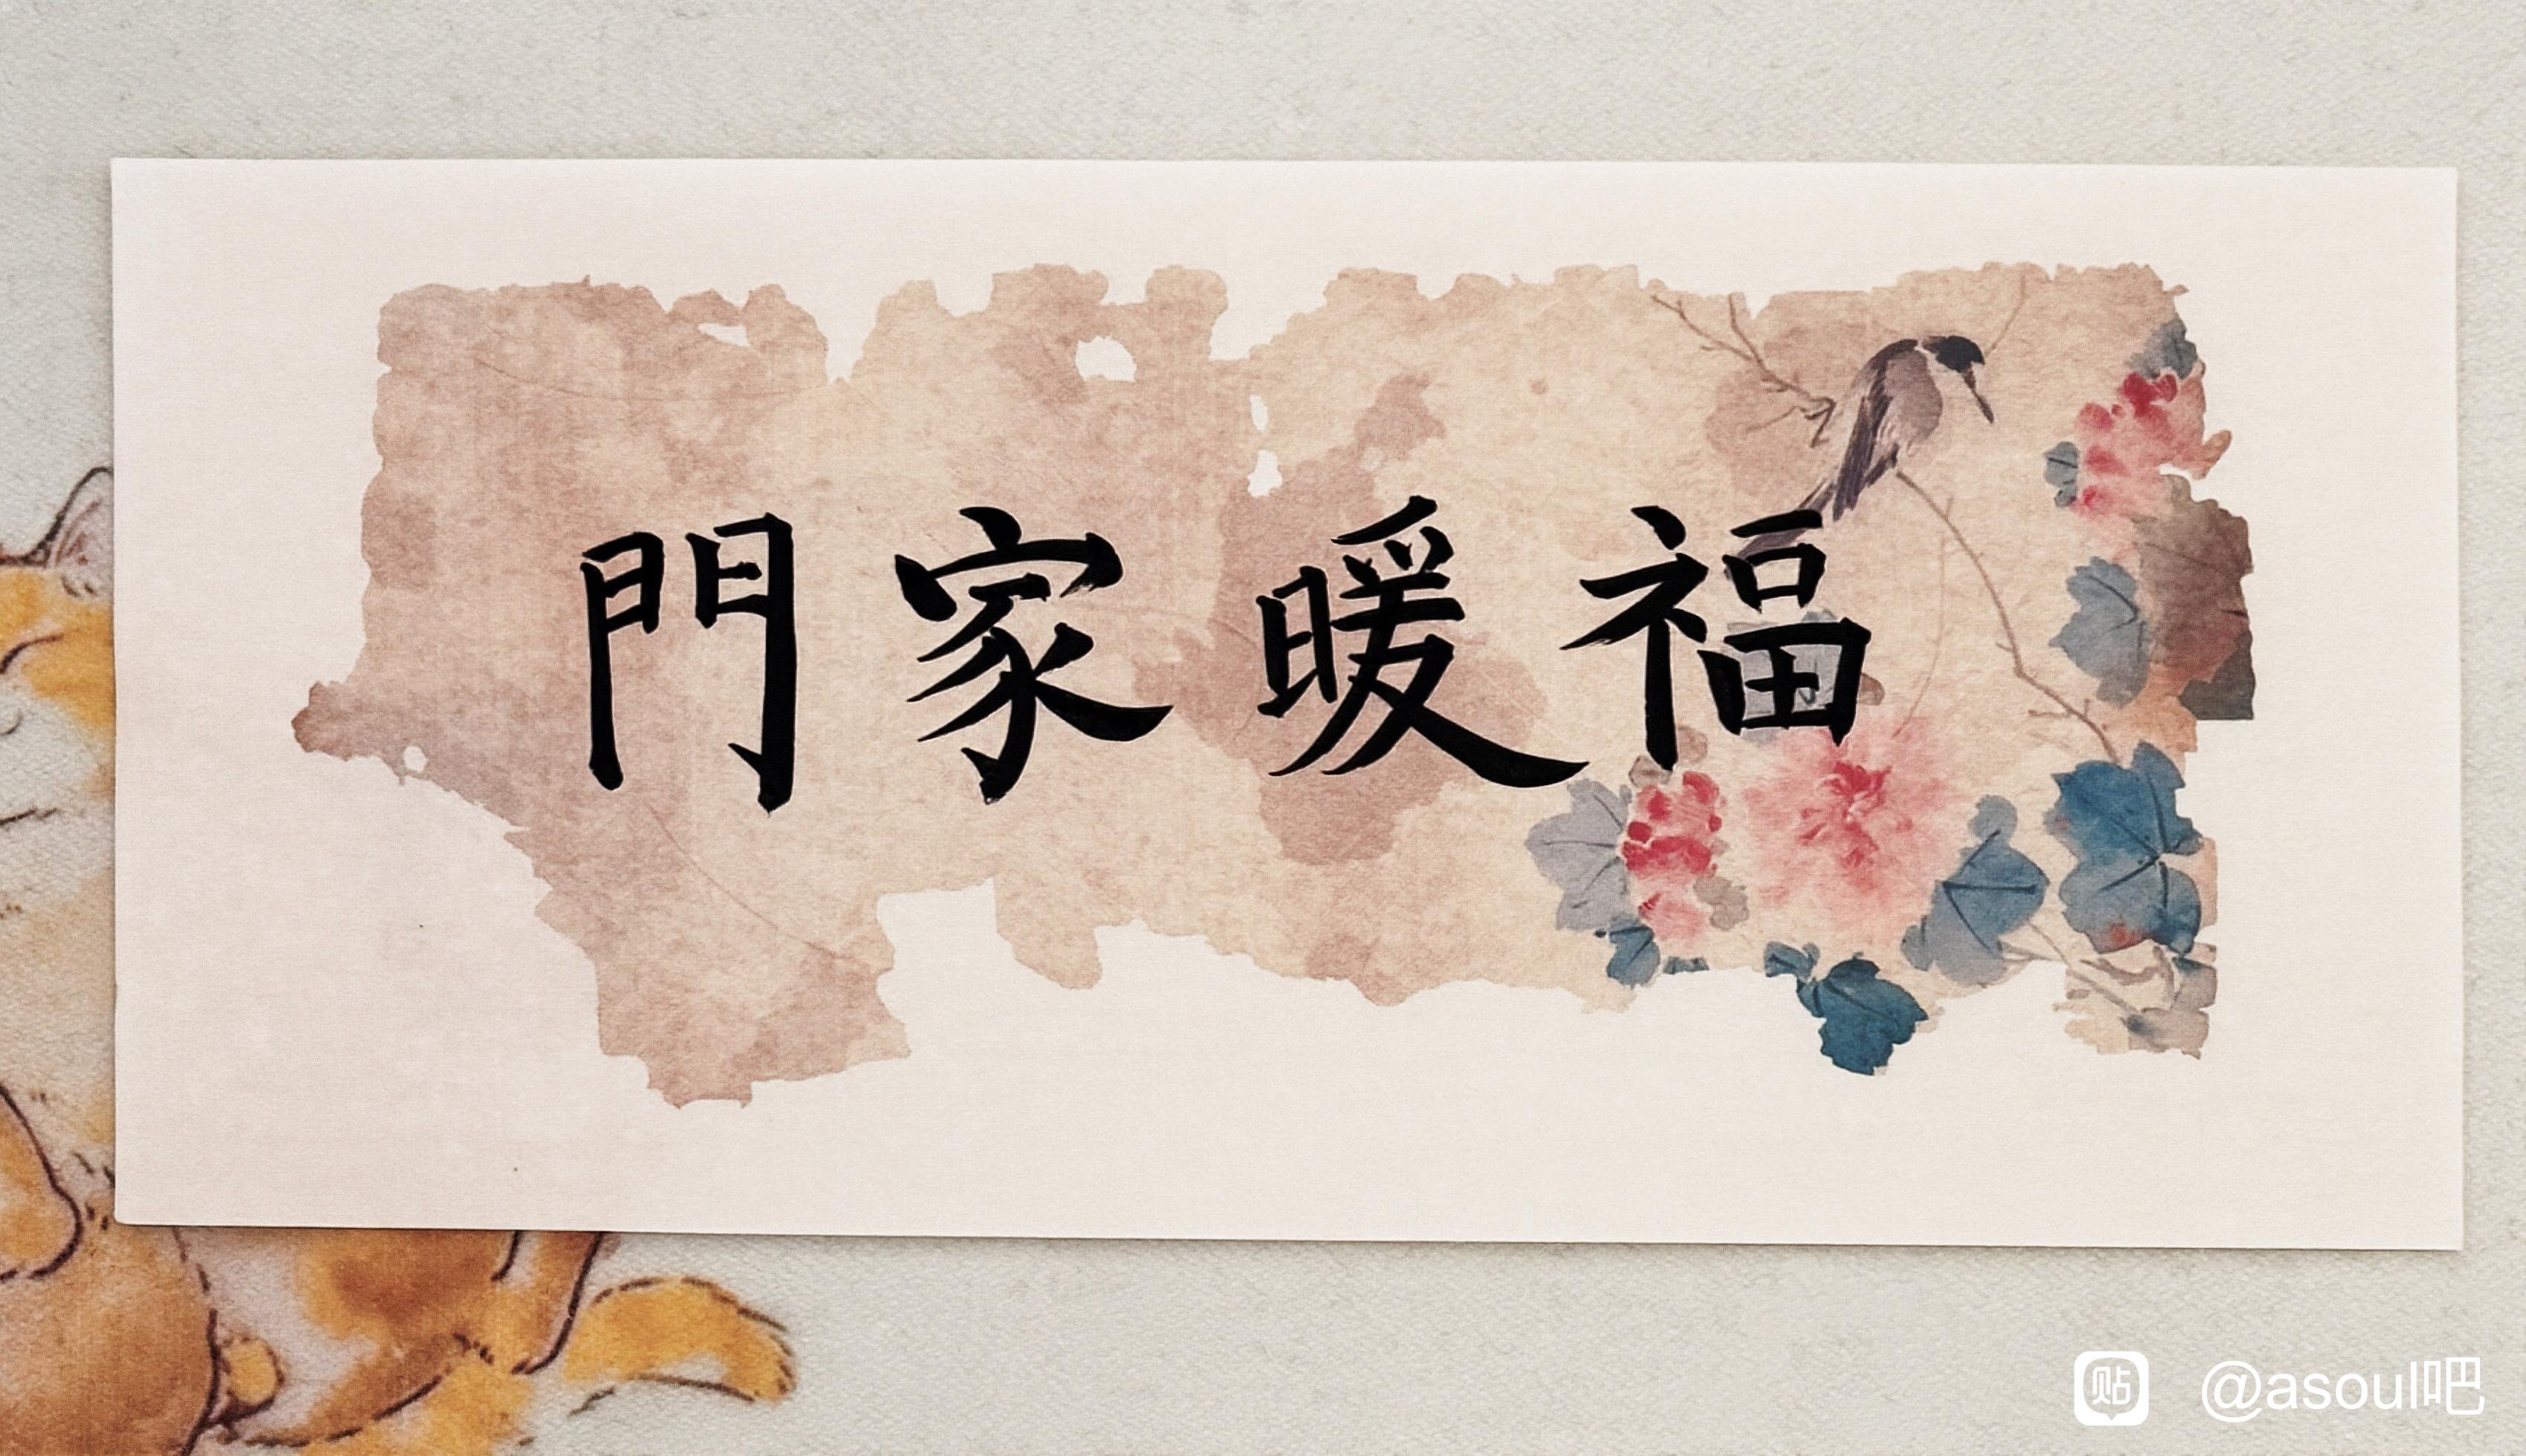 福暖家門
贴 @asoul吧